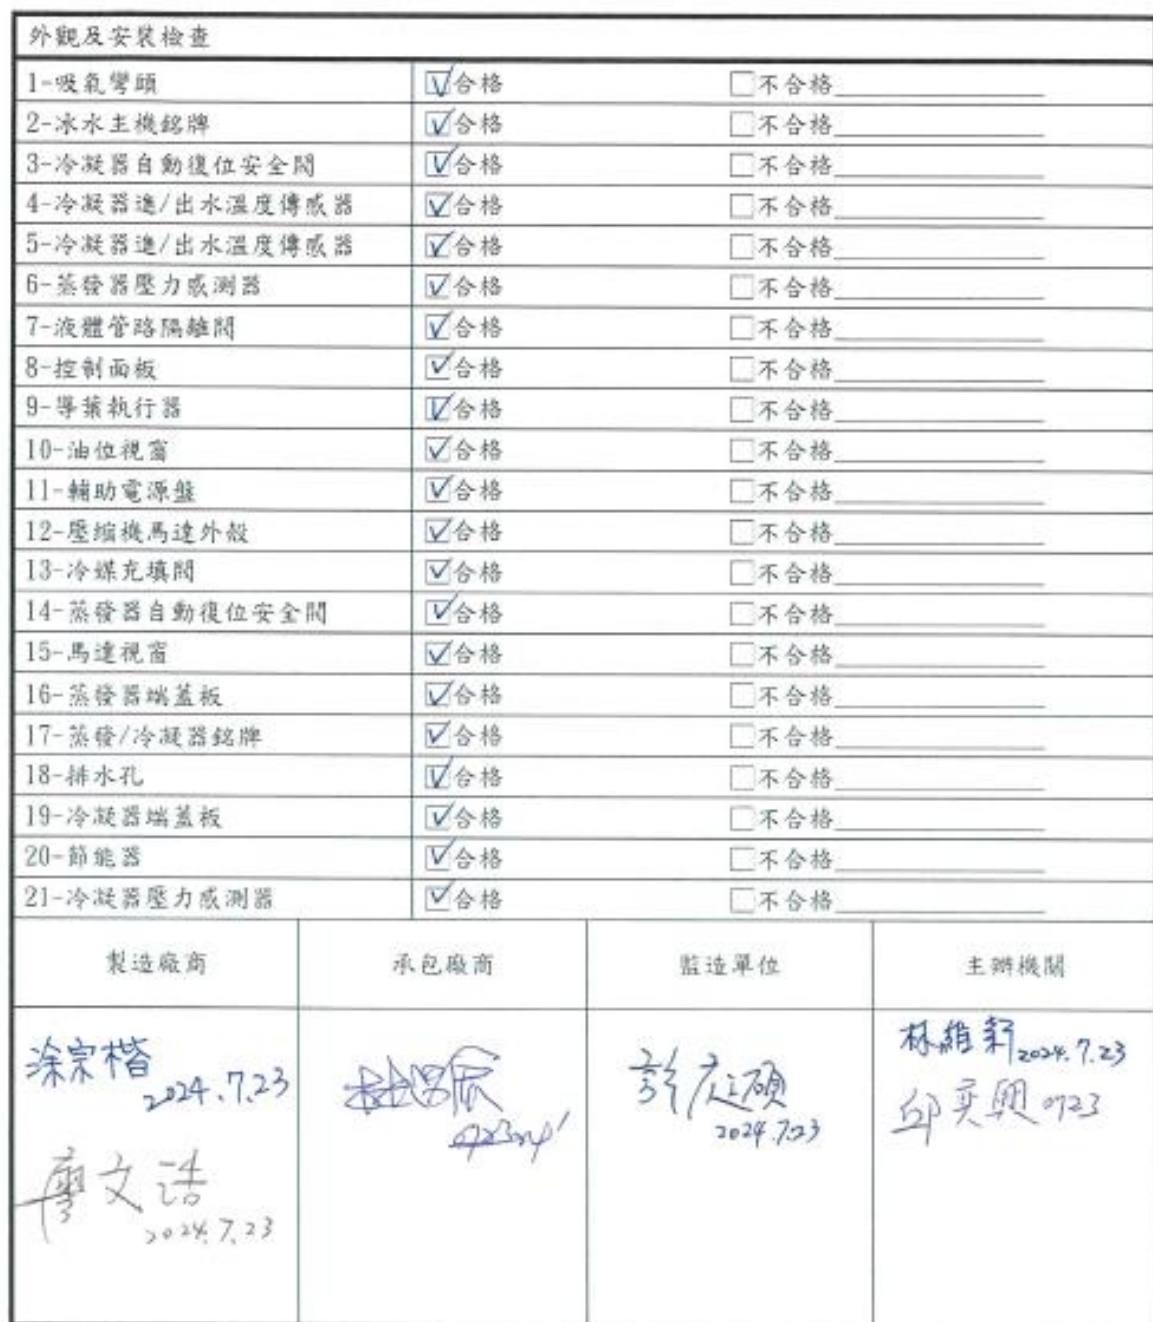 外觀及安裝檢查
1-吸氣彎頭 ☑合格 □不合格
2-冰水主機銘牌 ☑合格 □不合格
3-冷凝器自動復位安全閥 ☑合格 □不合格
4-冷凝器進/出水溫度傳感器 ☑合格 □不合格
5-冷凝器進/出水溫度傳感器 ☑合格 □不合格
6-蒸發器壓力感測器 ☑合格 □不合格
7-液體管路隔離閥 ☑合格 □不合格
8-控制面板 ☑合格 □不合格
9-導葉執行器 ☑合格 □不合格
10-油位視窗 ☑合格 □不合格
11-輔助電源盤 ☑合格 □不合格
12-壓縮機馬達外殼 ☑合格 □不合格
13-冷媒充填閥 ☑合格 □不合格
14-蒸發器自動復位安全閥 ☑合格 □不合格
15-馬達視窗 ☑合格 □不合格
16-蒸發器端蓋板 ☑合格 □不合格
17-蒸發/冷凝器銘牌 ☑合格 □不合格
18-排水孔 ☑合格 □不合格
19-冷凝器端蓋板 ☑合格 □不合格
20-節能器 ☑合格 □不合格
21-冷凝器壓力感測器 ☑合格 □不合格
製造廠商 承包廠商 監造單位 主辦機關
涂宗楷
2024.7.23
廖文
2024.7.23
彭
2024.7.23
林維
2024.7.23
邱奕興 0723